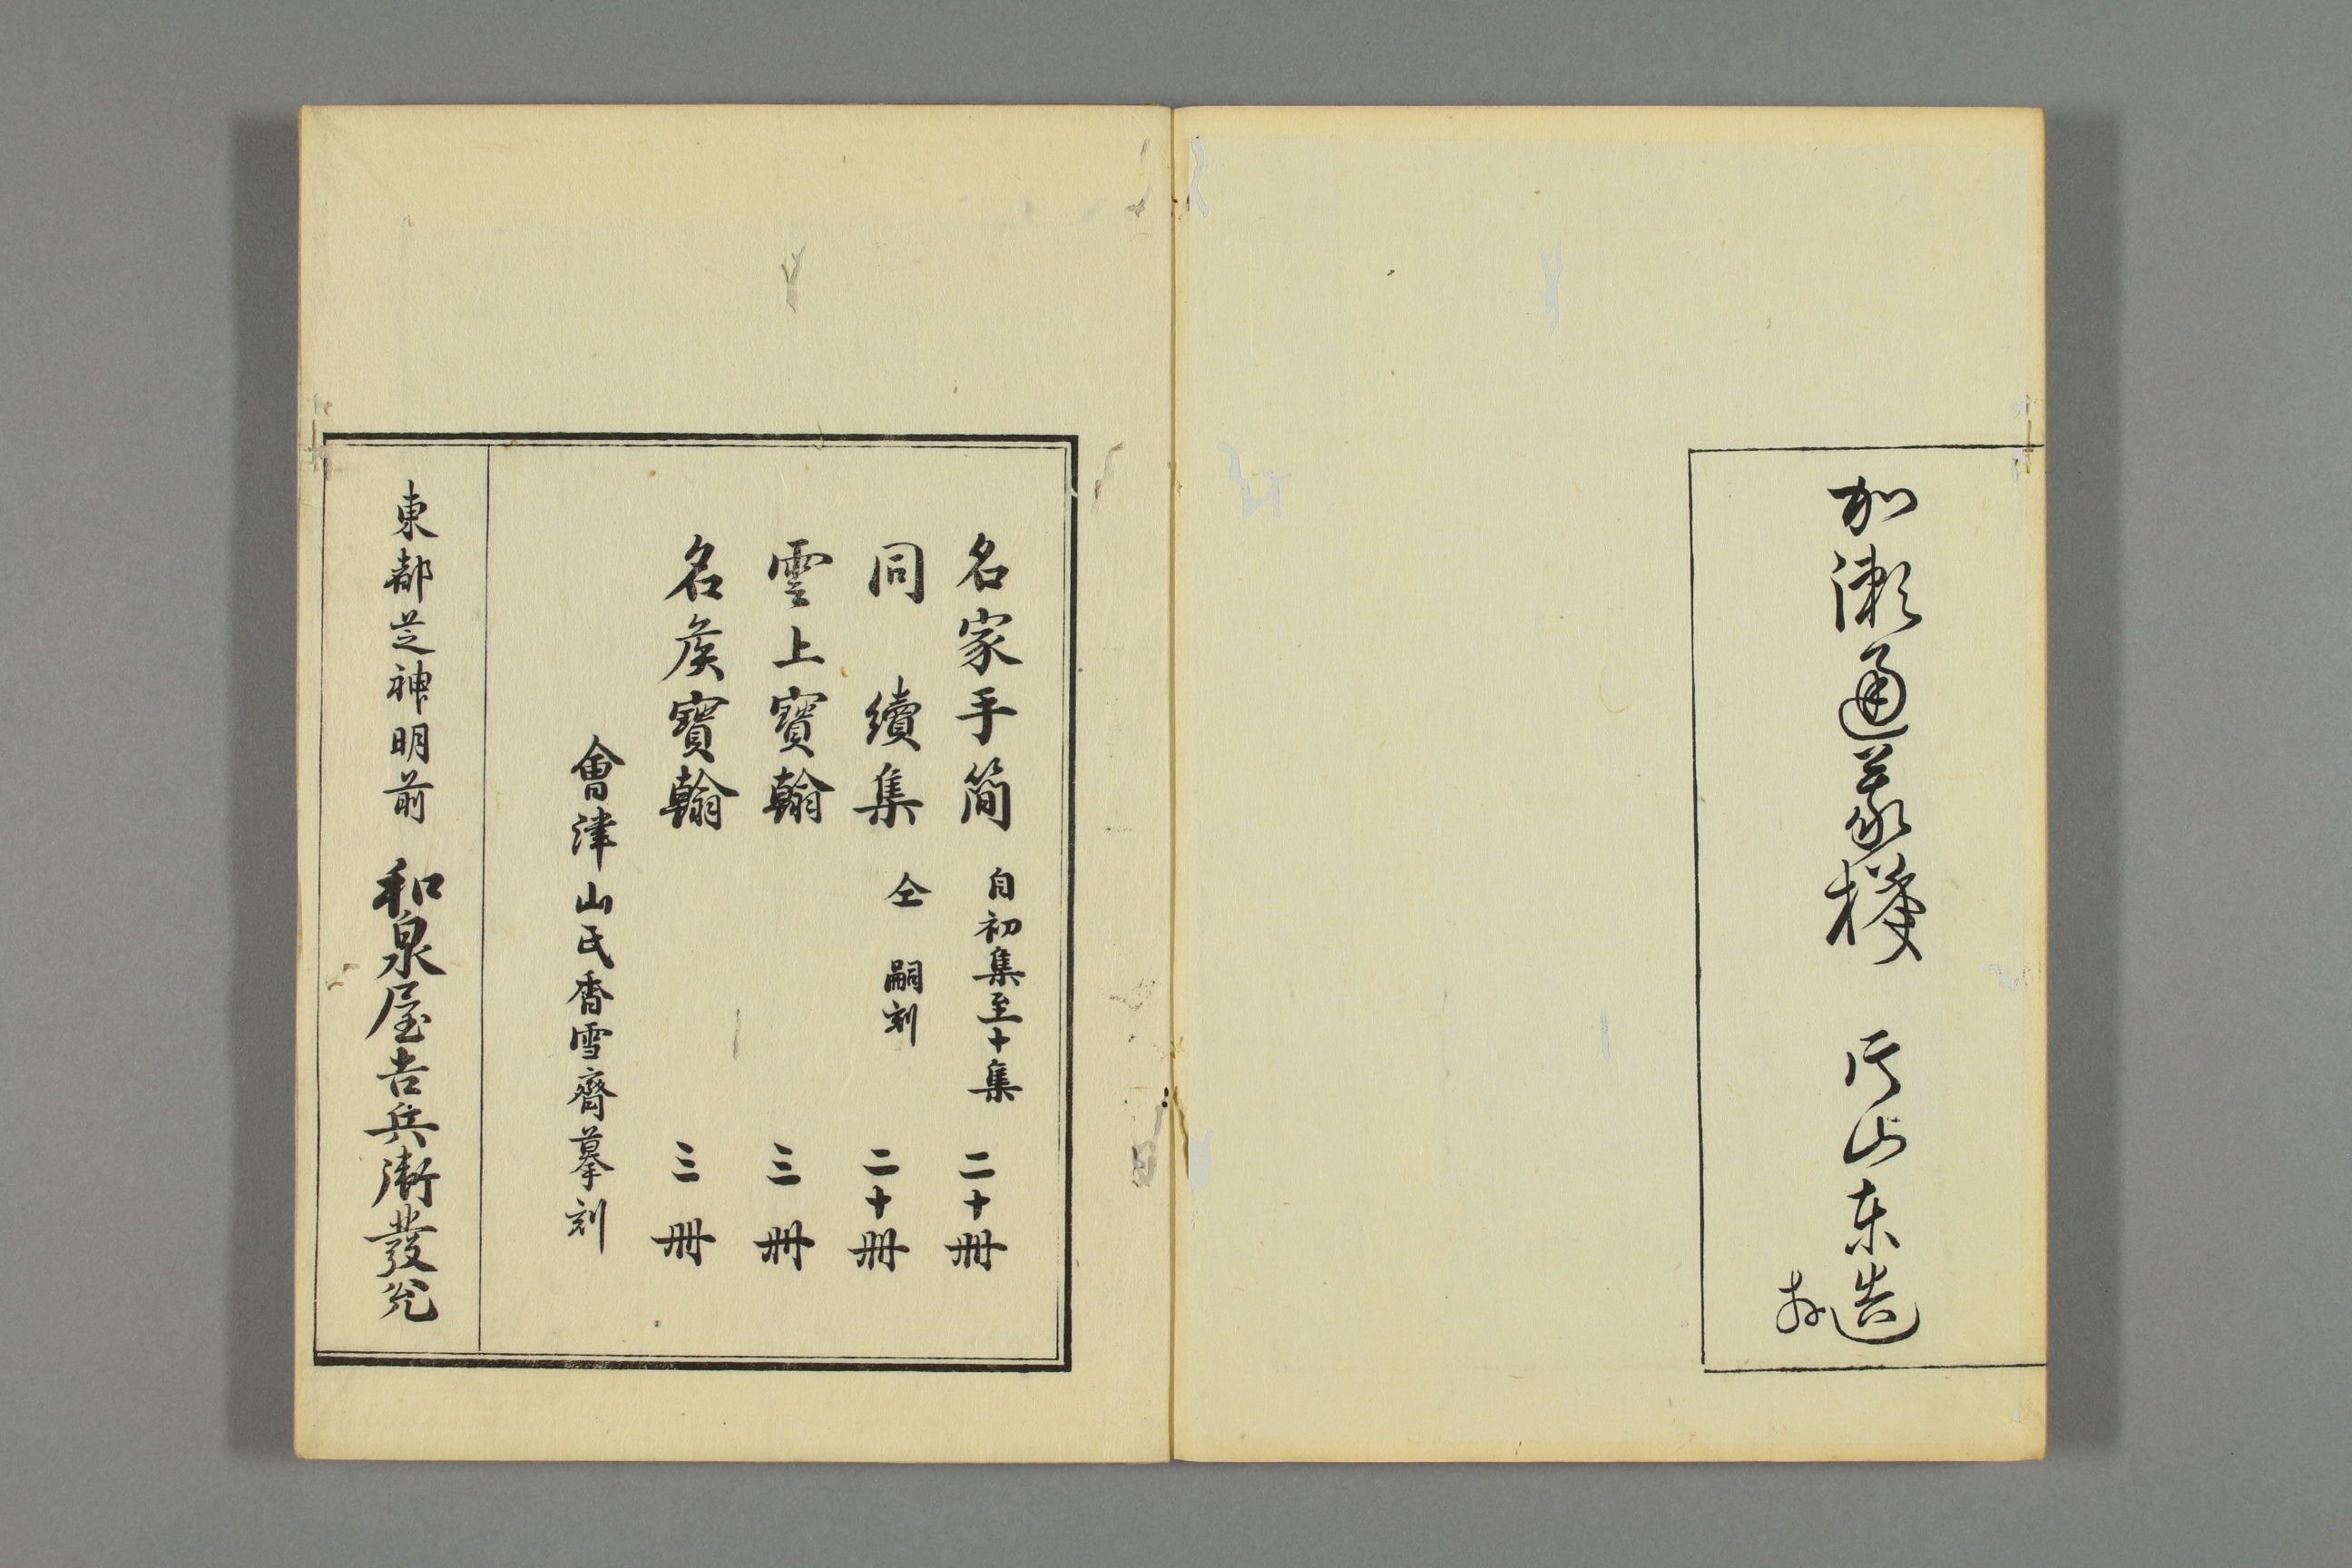 加瀬通義様 片山東造
名家手簡 自初集至十集 二十冊
同 續集 仝 嗣刻 二十冊
雲上寶翰 三冊
名矦寶翰 三冊
會津山氏香雪齋摹刻
東都芝神明前 和泉屋吉兵衛發兌